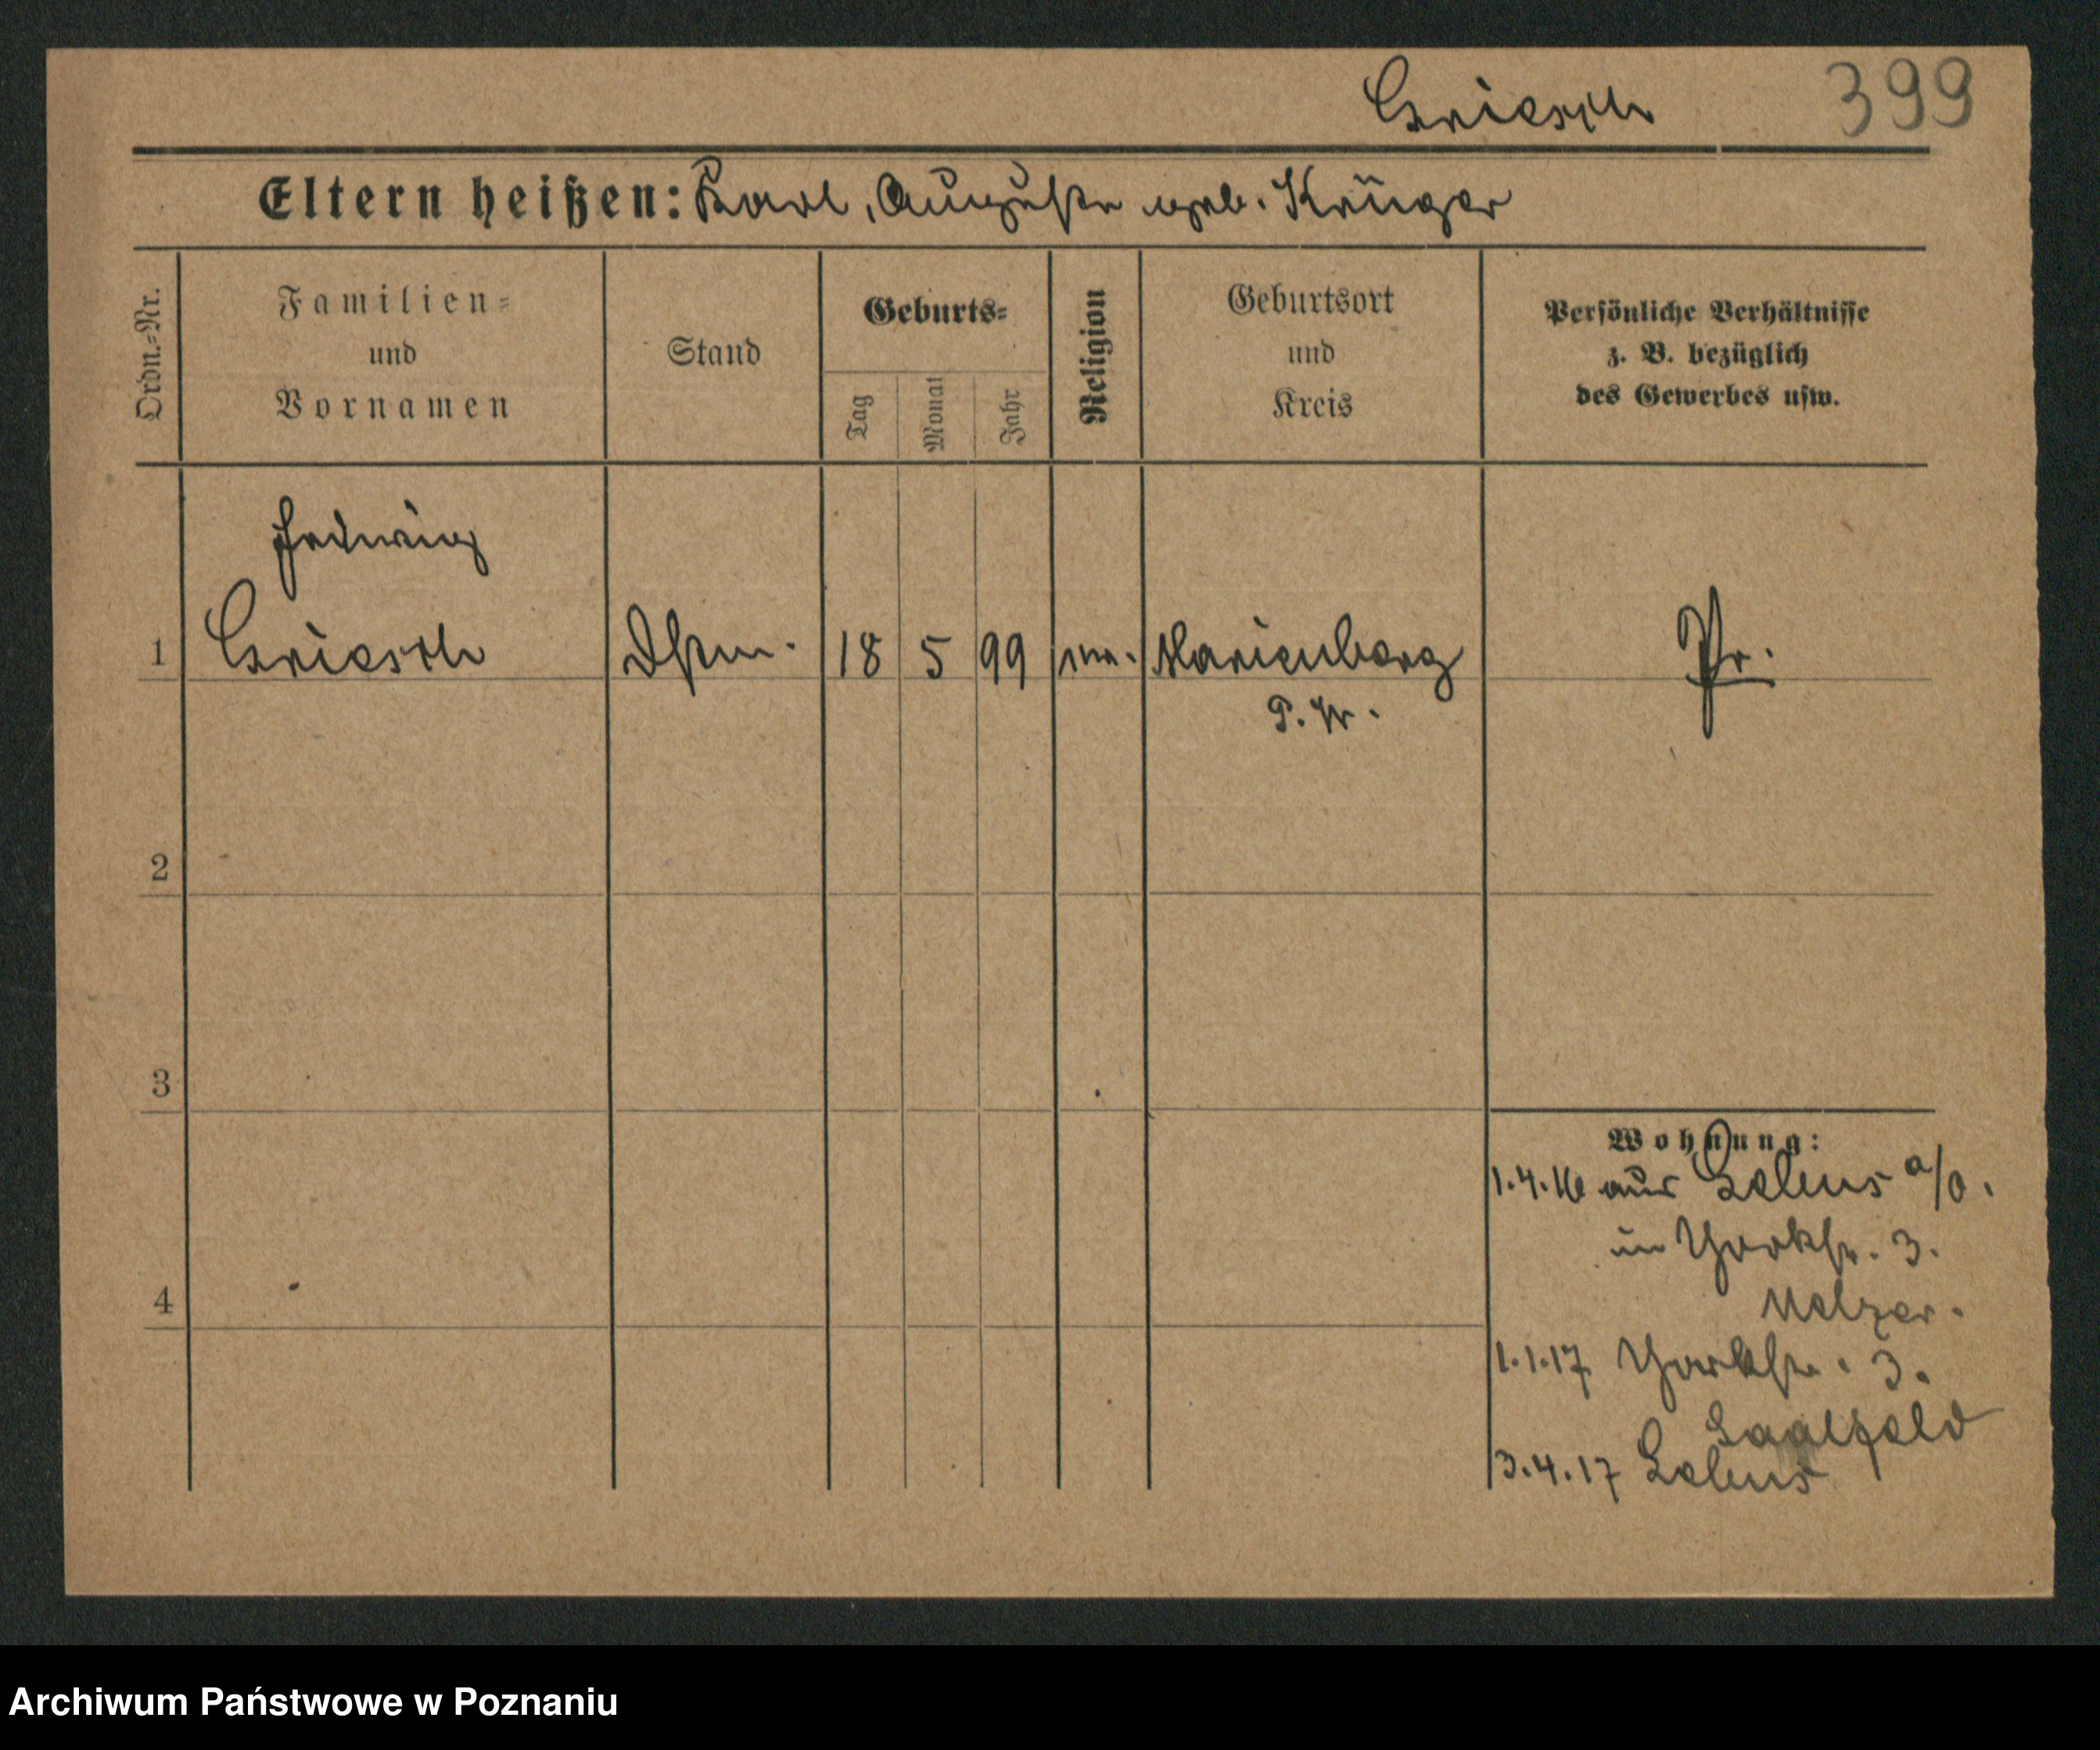 Griesch 399
Eltern heißen: Karl, Auguste geb. Krüger
Ordn.-Nr.
Familien-
und
Vornamen
Stand
Geburts-
Tag
Monat
Jahr
Religion
Geburtsort
und
Kreis
Persönliche Verhältnisse
z. B. bezüglich
des Gewerbes usw.
Hedwig
1 Griesch Dstm. 18 5 99 ev. Marienberg Pr.
2
3
4
Wohnung:
1.4.16 aus Lebus a/O.
in Yorkstr. 3.
Melzer.
1.1.17 Yorkstr. 3.
Saalfeld
3.4.17 Lebus
Archiwum Państwowe w Poznaniu